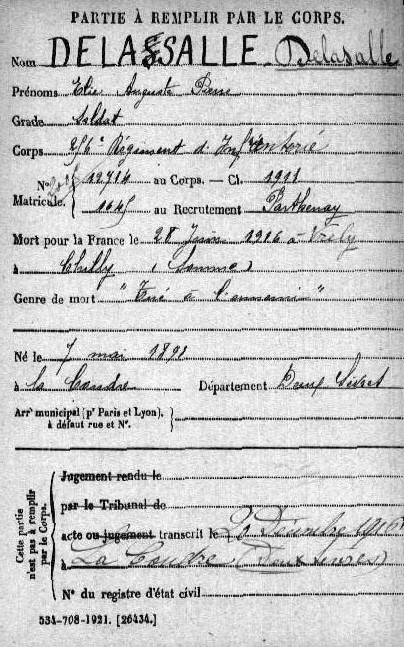 PARTIE À REMPLIR PAR LE CORPS.
Nom DELASSALLE Delasalle
Prénoms Elie Auguste Pierre
Grade Soldat
Corps Régiment d'Infanterie
Nº 12714 au Corps. — Cl. 1911
Matricule. 1645 au Recrutement Parthenay
Mort pour la France le 28 Juin 1916 à Vrély
à Chilly (Somme)
Genre de mort "Tué à l'ennemi"
Né le 7 mai 1891
à la Coudre Département Deux Sèvres
Arrᵗ municipal (pʳ Paris et Lyon),
à défaut rue et Nº.
Cette partie
n'est pas à remplir
par le Corps.
Jugement rendu le
par le Tribunal de
acte ou jugement transcrit le Décembre 1916
à La Coudre (Deux Sèvres)
Nº du registre d'état civil
534-708-1921. [26434.]